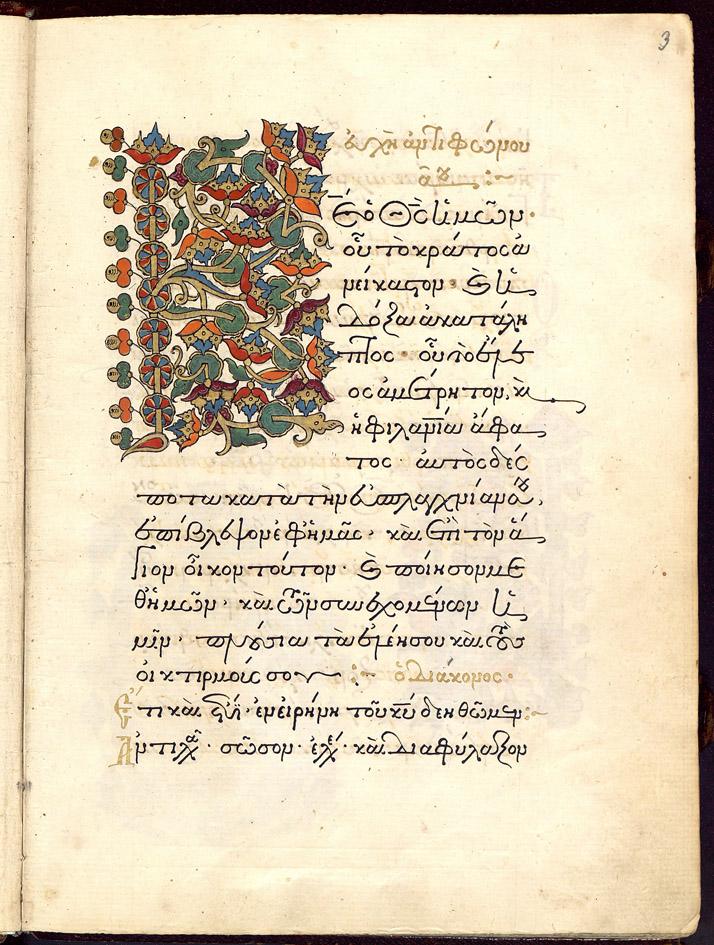 3
εὐχὴ ἀντιφώνου
αου :~
Κε ὁ Θς ἡμῶν·
οὗ τὸ κράτος ἀ
νείκαστον· καὶ ἡ
δόξα ἀκατάλη
πτος· οὗ τὸ ἔλε
ος ἀμέτρητον, καὶ
ἡ φιλανία ἄφα
τος· αὐτὸς δέσ
ποτα κατὰ τὴν εὐσπλαγχνίαν σου,
ἐπίβλεψον ἐφ ἡμᾶς· καὶ ἐπὶ τὸν ἅ
γιον οἶκον τοῦτον· καὶ ποίησον με
θ ἡμῶν· καὶ τῶν συνευχομένων ἡ
μῖν· πλούσια τὰ ἐλέη σου καὶ τοὺς
οἰκτιρμούς σου :~ ὁ διάκονος·
Ἔτι καὶ ἔτι· ἐν εἰρήνη τοῦ κυ δεηθῶμεν:~
Ἀντιλα· σῶσον· ἐλε· καὶ διαφύλαξον